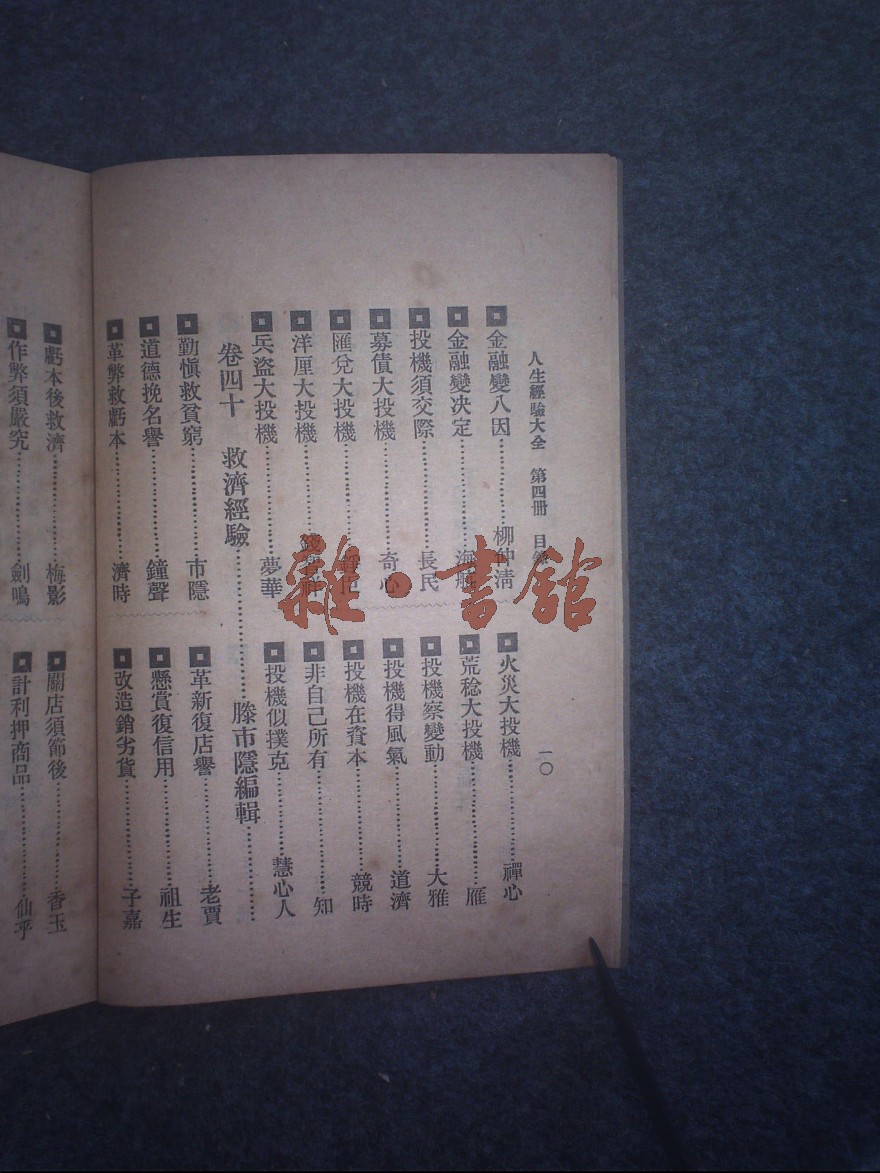 人生經驗大全 第四冊 目錄 一〇
金融變八因 柳仲清
金融變決定 海
投機須交際 長民
募債大投機 奇心
匯兌大投機
洋厘大投機
兵盜大投機 夢華
火災大投機 禪心
荒稔大投機 雁
投機察變動 大雅
投機得風氣 道濟
投機在資本 競時
非自己所有 知
投機似撲克 慧心人
卷四十 救濟經驗 滕市隱編輯
勤愼救貧窮 市隱
道德挽名譽 鐘聲
革弊救虧本 濟時
革新復店譽 老賈
懸賞復信用 祖生
改造銷劣貨 子嘉
虧本後救濟 梅影
作弊須嚴究 劍鳴
關店須節後 香玉
計利押商品 仙乎
雜·書館